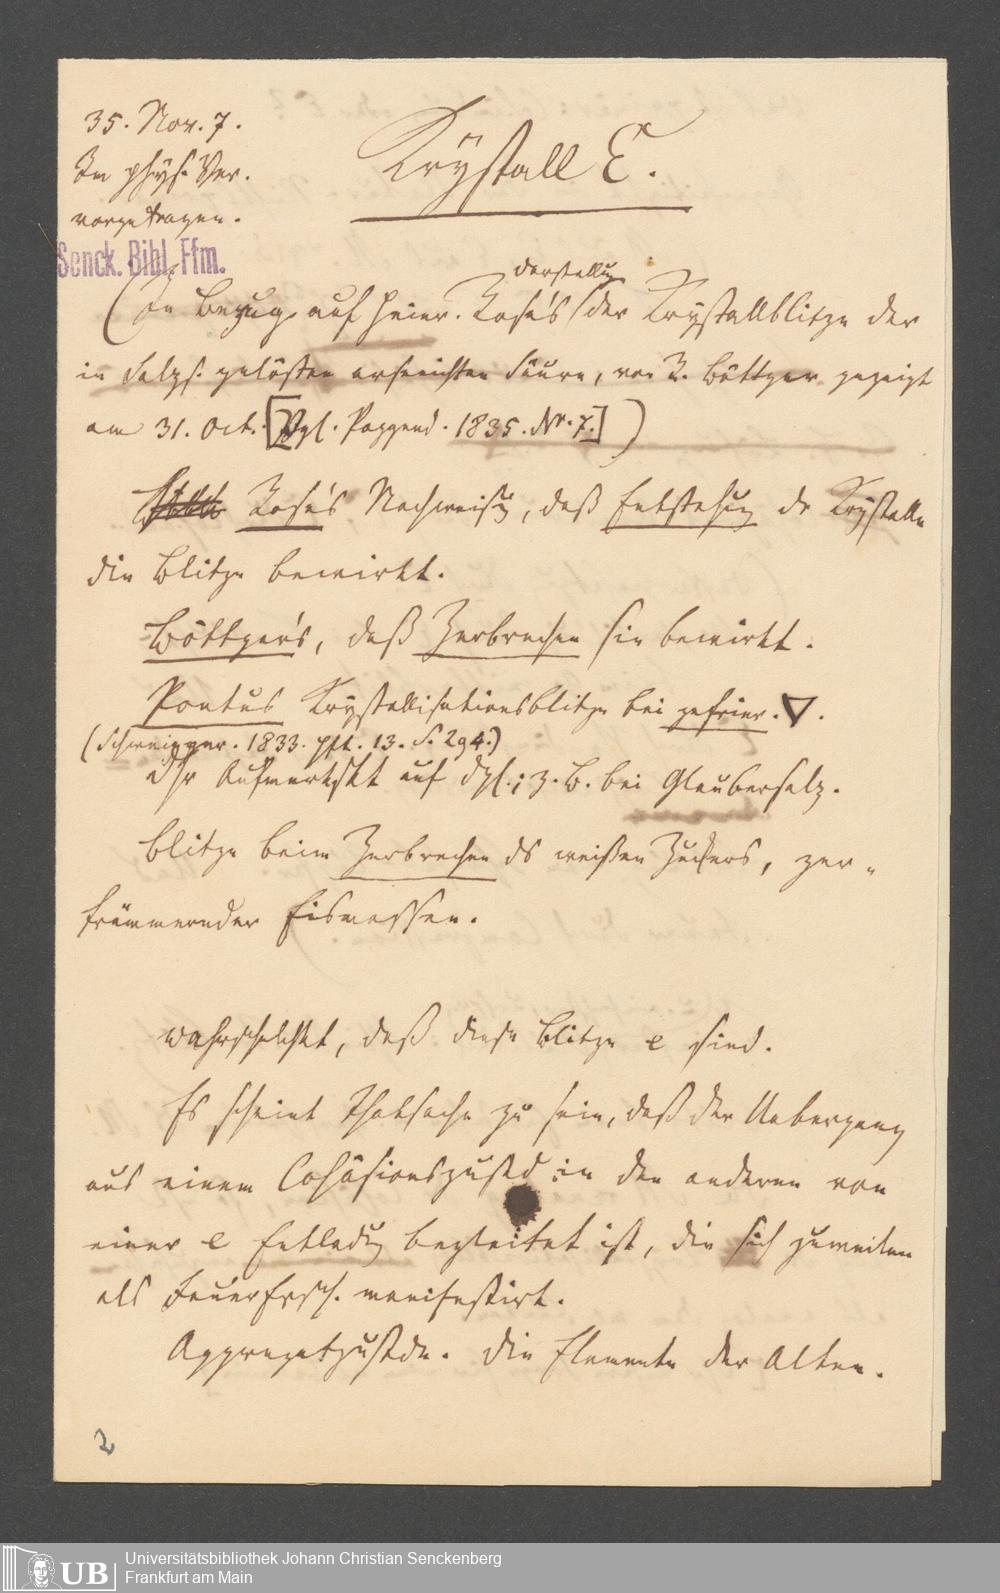 35. Nov. 7.
Im phys. Ver.
vorgetragen.
Krystall E.
Senck. Bibl. Ffm.
darstellung
(In Bezug auf Heinr. Rose's der Krystallblitze der
in Salzs. gelösten arsenichten Säure, von R. Böttger gezeigt
am 31. Oct. [Vgl. Poggend. 1835. Nr. 7.])
Rose's Nachweisg, daß Entstehung der Krystalle
die Blitze bewirkt.
Böttger's, daß Zerbrechen sie bewirkt.
Pontus Krystallisationsblitze bei gefrier. ▽.
(Schweigger. 1833. Hft. 13. S. 294.)
Aufmerkskt auf dgl.; z. B. bei Glaubersalz.
Blitze beim Zerbrechen ds weißen Zuckers, zer-
trümmernder Eismassen.
daß diese Blitze e sind.
Es scheint Thatsache zu sein, daß der Uebergang
aus einem Cohäsionszustd in den anderen von
einer e Entladug begleitet ist, die sich zuweilen
als FeuerErsch. manifestirt.
Aggregatzustde. Die Elemente der Alten.
2
UB
Universitätsbibliothek Johann Christian Senckenberg
Frankfurt am Main